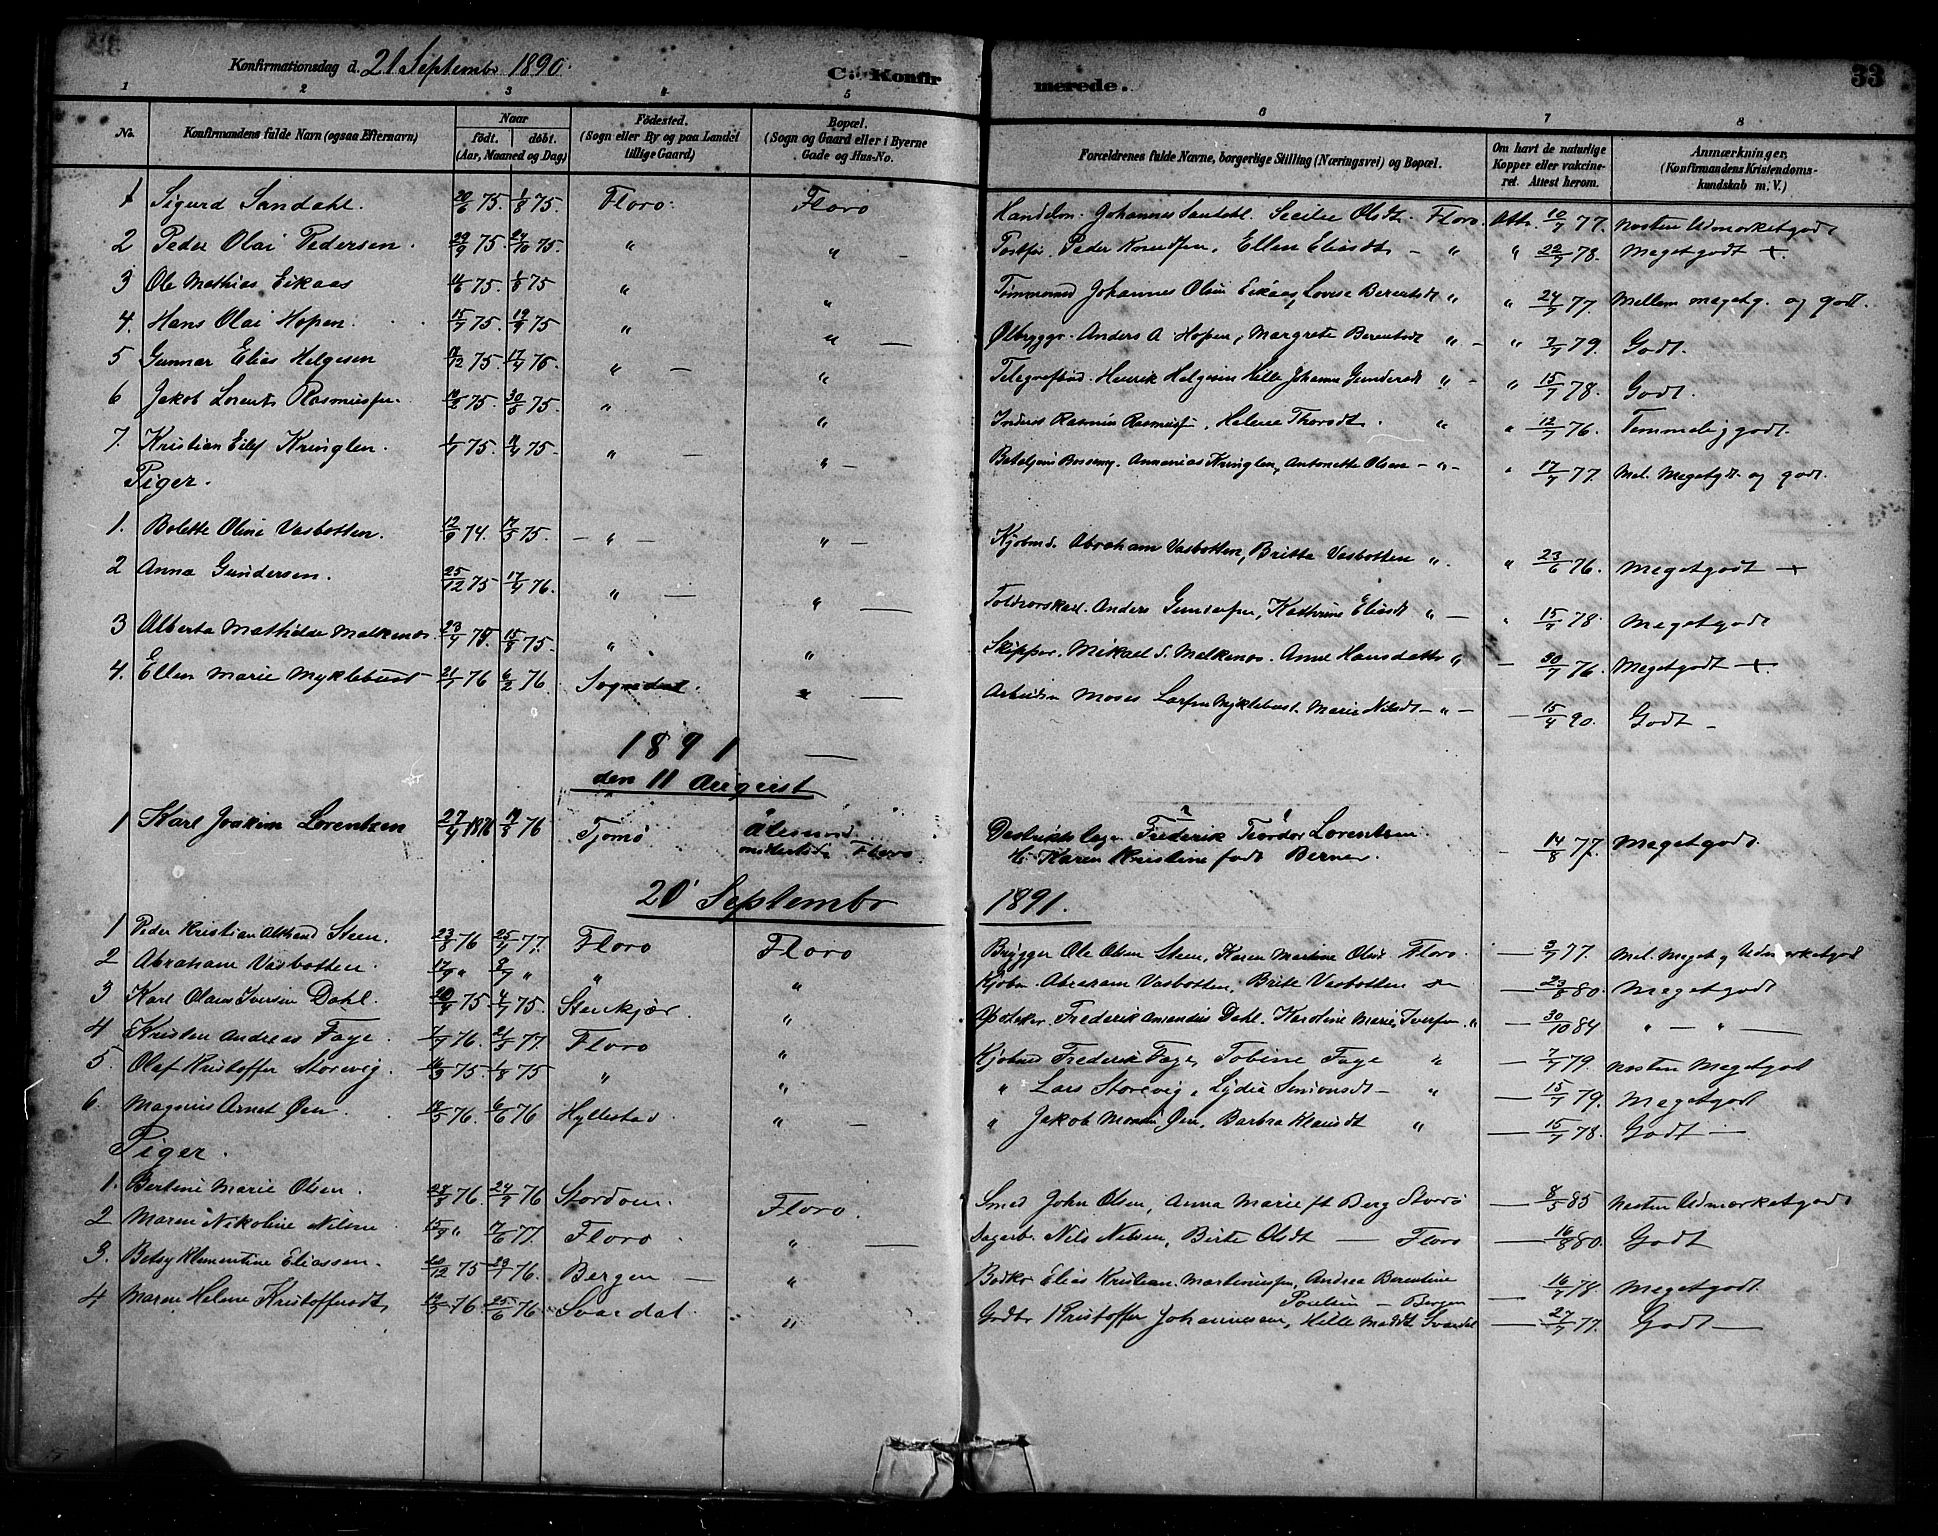 Konfirmationsdag d. 21 September 1890.
C. Konfirmerede. 33
1 2 3 4 5 6 7 8
No. Konfirmandens fulde Navn (ogsaa Efternavn) Naar født. døbt. (Aar, Maaned og Dag) Fødested. (Sogn eller By og paa Landet tillige Gaard) Bopæl. (Sogn og Gaard eller i Byerne Gade og Hus-No. Forældrenes fulde Navne, borgerlige Stilling (Næringsvei) og Bopæl. Om havt de naturlige Kopper eller vakcineret. Attest herom. Anmærkninger, (Konfirmandens Kristendomskundskab m. V.)
1 Sigurd Sandahl. 20/6 75. 1/8 75. Floro. Floro Handelm. Johannes Sandahl. Secilie Olsdt. Floro. Att. 10/7 77. Nesten Udmerketgodt
2 Peder Olai Pedersen. 29/9 75. 24/10 75. " " Peder Knudsen, Ellen Eliasdt. - " " 22/7 78. Megetgodt +.
3 Ole Mathias Eikaas 75. 75 " " Tømmermd Johannes Olsen Eikaas, Lovise Berentsdt " " 24/7 77. Mellem megetg. og godt.
4. Hans Olai Hopen. 15/7 75. 19/9 75 " " Ølbrygger. Anders A. Hopen, Margrete Berentsdt " - " 7/7 79. Godt.
5 Gunnar Elias Helgesen 12 75. 17/4 76. " " Telegrafbud. Henrik Helgesen Hille Johanne Gundersdt " - " 15/7 78. Godt.
6 Jakob Lorents Rasmussen. 75. 30/5 75. " " Rasmus Rasmuss, Helene Thorsdt. " " 12/7 76. Temmeliggodt.
7. Kristian Eilef Kringlen. 75. 75. " " Ananias Kringlen, Antonette Olsen - " - " 17/7 77. Mel. Megetgdt. og godt.
Piger.
1. Bolette Oline Vasbotten. 12/9 74. 17/5 75. - " - " - Kjøbmd. Abraham Vasbotten, Britta Vasbotten ". " 23/6 76. Megetgodt +
2 Anna Gundersen. 25/12 75 17/4 76. " " Toldrorskarl. Anders Gundersen, Kathrine Eliasdt " - " 15/7 78. Megetgodt
3 Alberta Mathilde Malkenes. 23/4 75. 15/8 75. " " Skipper. Mikael S. Malkenes. Anne Hansdatter " - 20/7 76. Megetgodt +.
4. Ellen Marie Myklebust 21/1 76 6/2 76. Sogndal. " Arbeider Moses Larsen Myklebust. Marie Nilsdt - " - - 15/4 90. Godt -
1891
den 11 August
1 Karl Joakim Lorentzen 27/4 1876 76 Tjomø Ålesund midlertid. Floro. Distriktslæge Frederik Teodor Lorentzen H. Karen Kristine født Berner. - 14/8 77. Megetgodt.
20 September 1891.
1 Peder Kristian Steen. 23/8 76 25/4 77. Floro Floro Brygger Ole Olsen Steen, Karen Martine Olsd. Floro. - 3/7 77. Mel. Meget g Udmerketgod
2 Abraham Vasbotten. 17/9 " " " " Kjøbm Abraham Vasbotten, Brite Vasbotten - 23/8 80. Megetgodt
3 Karl Olaus Iversen Dahl. 75 75. Stenkjær. " Frederik Amandus Dahl. Karoline Marie, Iversen. " - 30/10 84 " - " -
4 Kristen Andreas Faye. 76. 21/5 77. Floro " Kjøbmd Frederik Faye, Tobine Faye " - 7/7 79. Nesten Megetgodt
5. Olaf Kristoffer Storevig. 75. 1/8 75 " " " Lars Storevig, Lydia Simonsdt - " - 15/7 79. Megetgodt
6. Magnus Arnet Øen. 76. 6/6 76 Hyllestad. " " Jakob Monsen Øen, Barbra Klausdt " - 15/7 78. Godt -
Piger.
1. Bertine Marie Olsen. 76. 24/9 76 Stordoen. Floro. Smed John Olsen, Anna Marie ft Berg Storø - 8/5 85 Nesten Udmerketgodt
2 Maren Nikoline Nilsen 15/9 " 7/6 77. Floro. " Dagarb. Nils Nilsen, Birte Olsdt - Floro - 16/8 80. Godt
3. Betsy Klementine Eliassen. 20/12 75 23/1 76. Bergen - " Bødker Elias Kristian Martinussen, Andrea Berentine Poulsen - Bergen - 16/7 78. Megetgodt.
4 Maren Helene Kristoffersdt. 76 25/6 76 Svardal. " Gdbr. Kristoffer Johannesen, Hille Madsdt Svardal - 27/7 77. Godt -